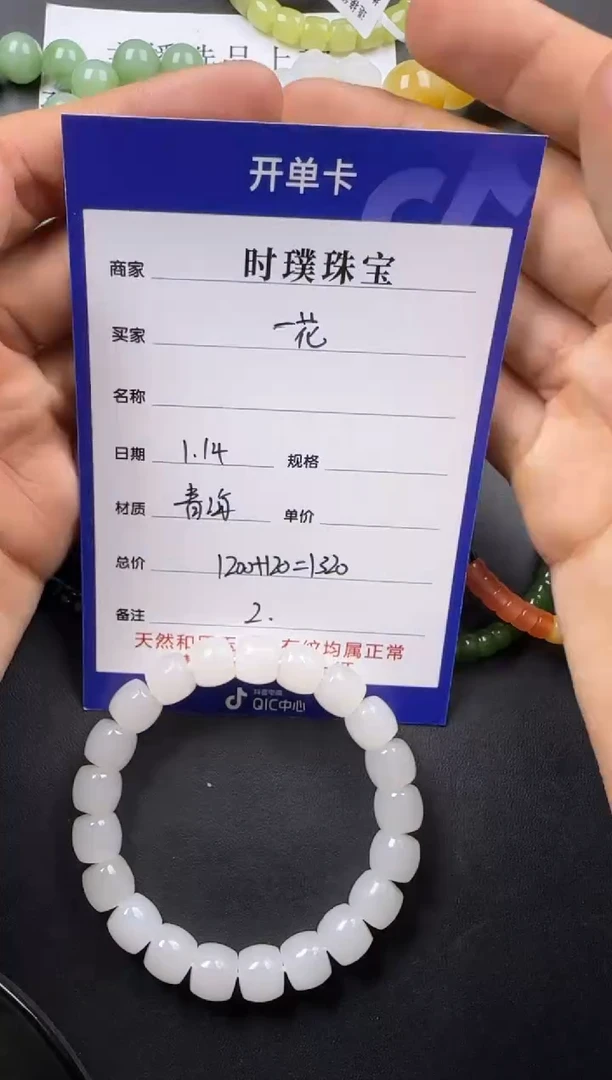 选品上
开单卡
商家 时璞珠宝
买家 一花
名称
日期 1.14 规格
材质 青海 单价
总价 1200+120=1320
备注 2.
天然和田玉 有纹均属正常
抖音电商
QIC中心